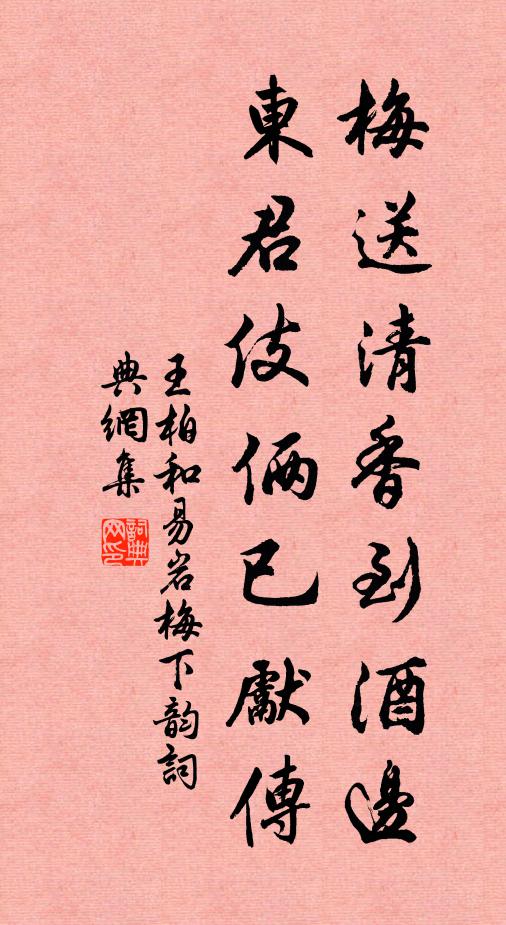 梅送清香到酒邊
東君伎倆已獻傳
王柏和易岩梅下韵詞
典網集
詞典網印